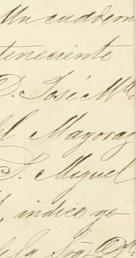 Un cuadern
teneciente
D. José Ma
del Mayoraz
S. Miguel
indico ye
de la Sra. Da